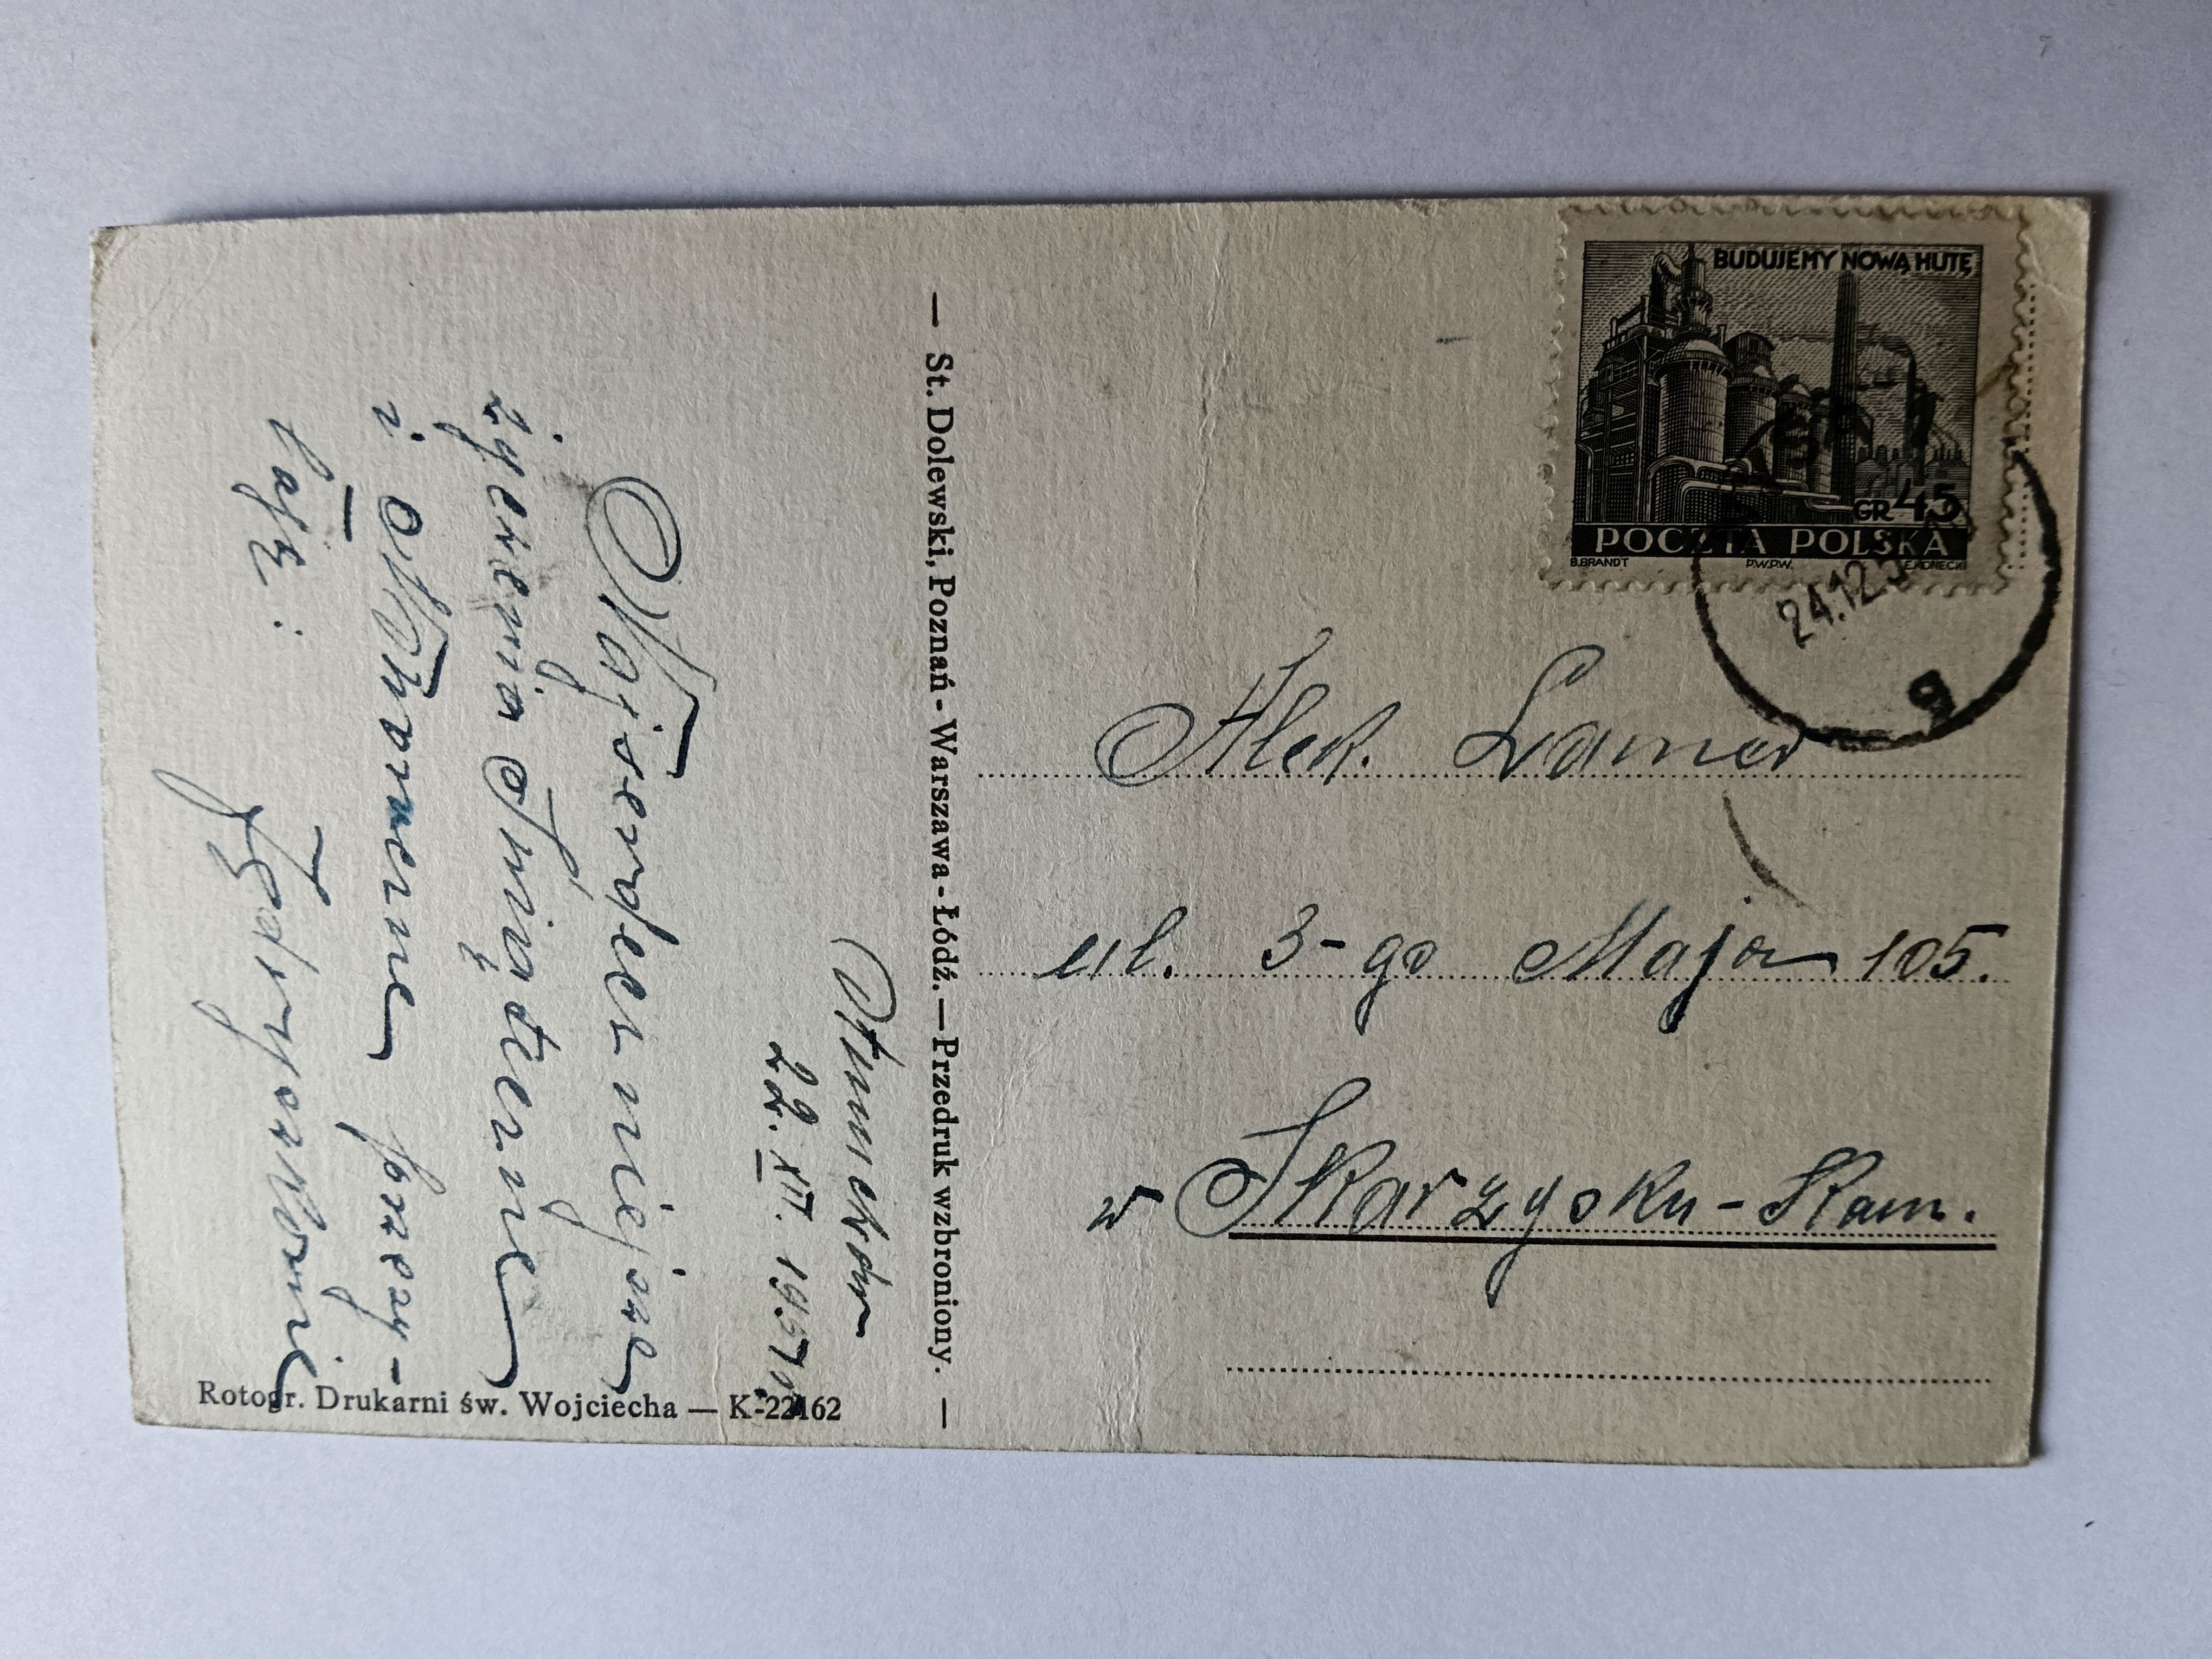 BUDUJEMY NOWĄ HUTĘ
GR 45
POCZTA POLSKA
B.BRANDT P.W.P.W. E.KONECKI
24.12.5
g
Alek. Lamer
ul. 3-go Maja 105.
w Skarżysku-Kam.
— St. Dolewski, Poznań - Warszawa - Łódź. — Przedruk wzbroniony. —
22. XII. 1951 r.
Najserdeczniejsze
życzenia Świąteczne
i Noworoczne przesy-
łają:
Rotogr. Drukarni św. Wojciecha — K-22162